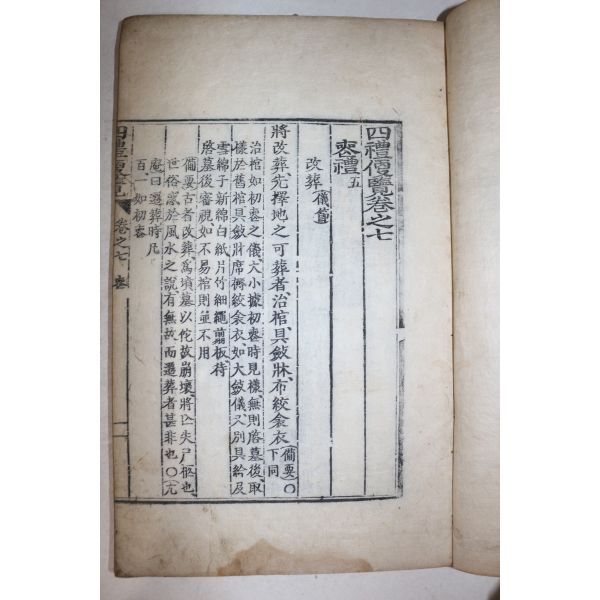 四禮便覽卷之七
喪禮五
改葬 儀節
將改葬先擇地之可葬者治棺具斂牀布絞衾衣 備要〇下同
治棺如初喪之儀大小據初喪時見樣無則啓墓後取
樣於舊棺具斂牀席褥絞衾衣如大斂儀又別具給及
雪綿子新綿白紙片竹細繩翦板待
啓墓後審視如不易棺則並不用
備要古者改葬爲墳墓以佗故崩壞將亡失尸柩也
世俗惑於風水之說有無故而遷葬者甚非也〇尤
庵曰遷葬時凡
百一如初喪
四禮便覽 卷之七 喪 一